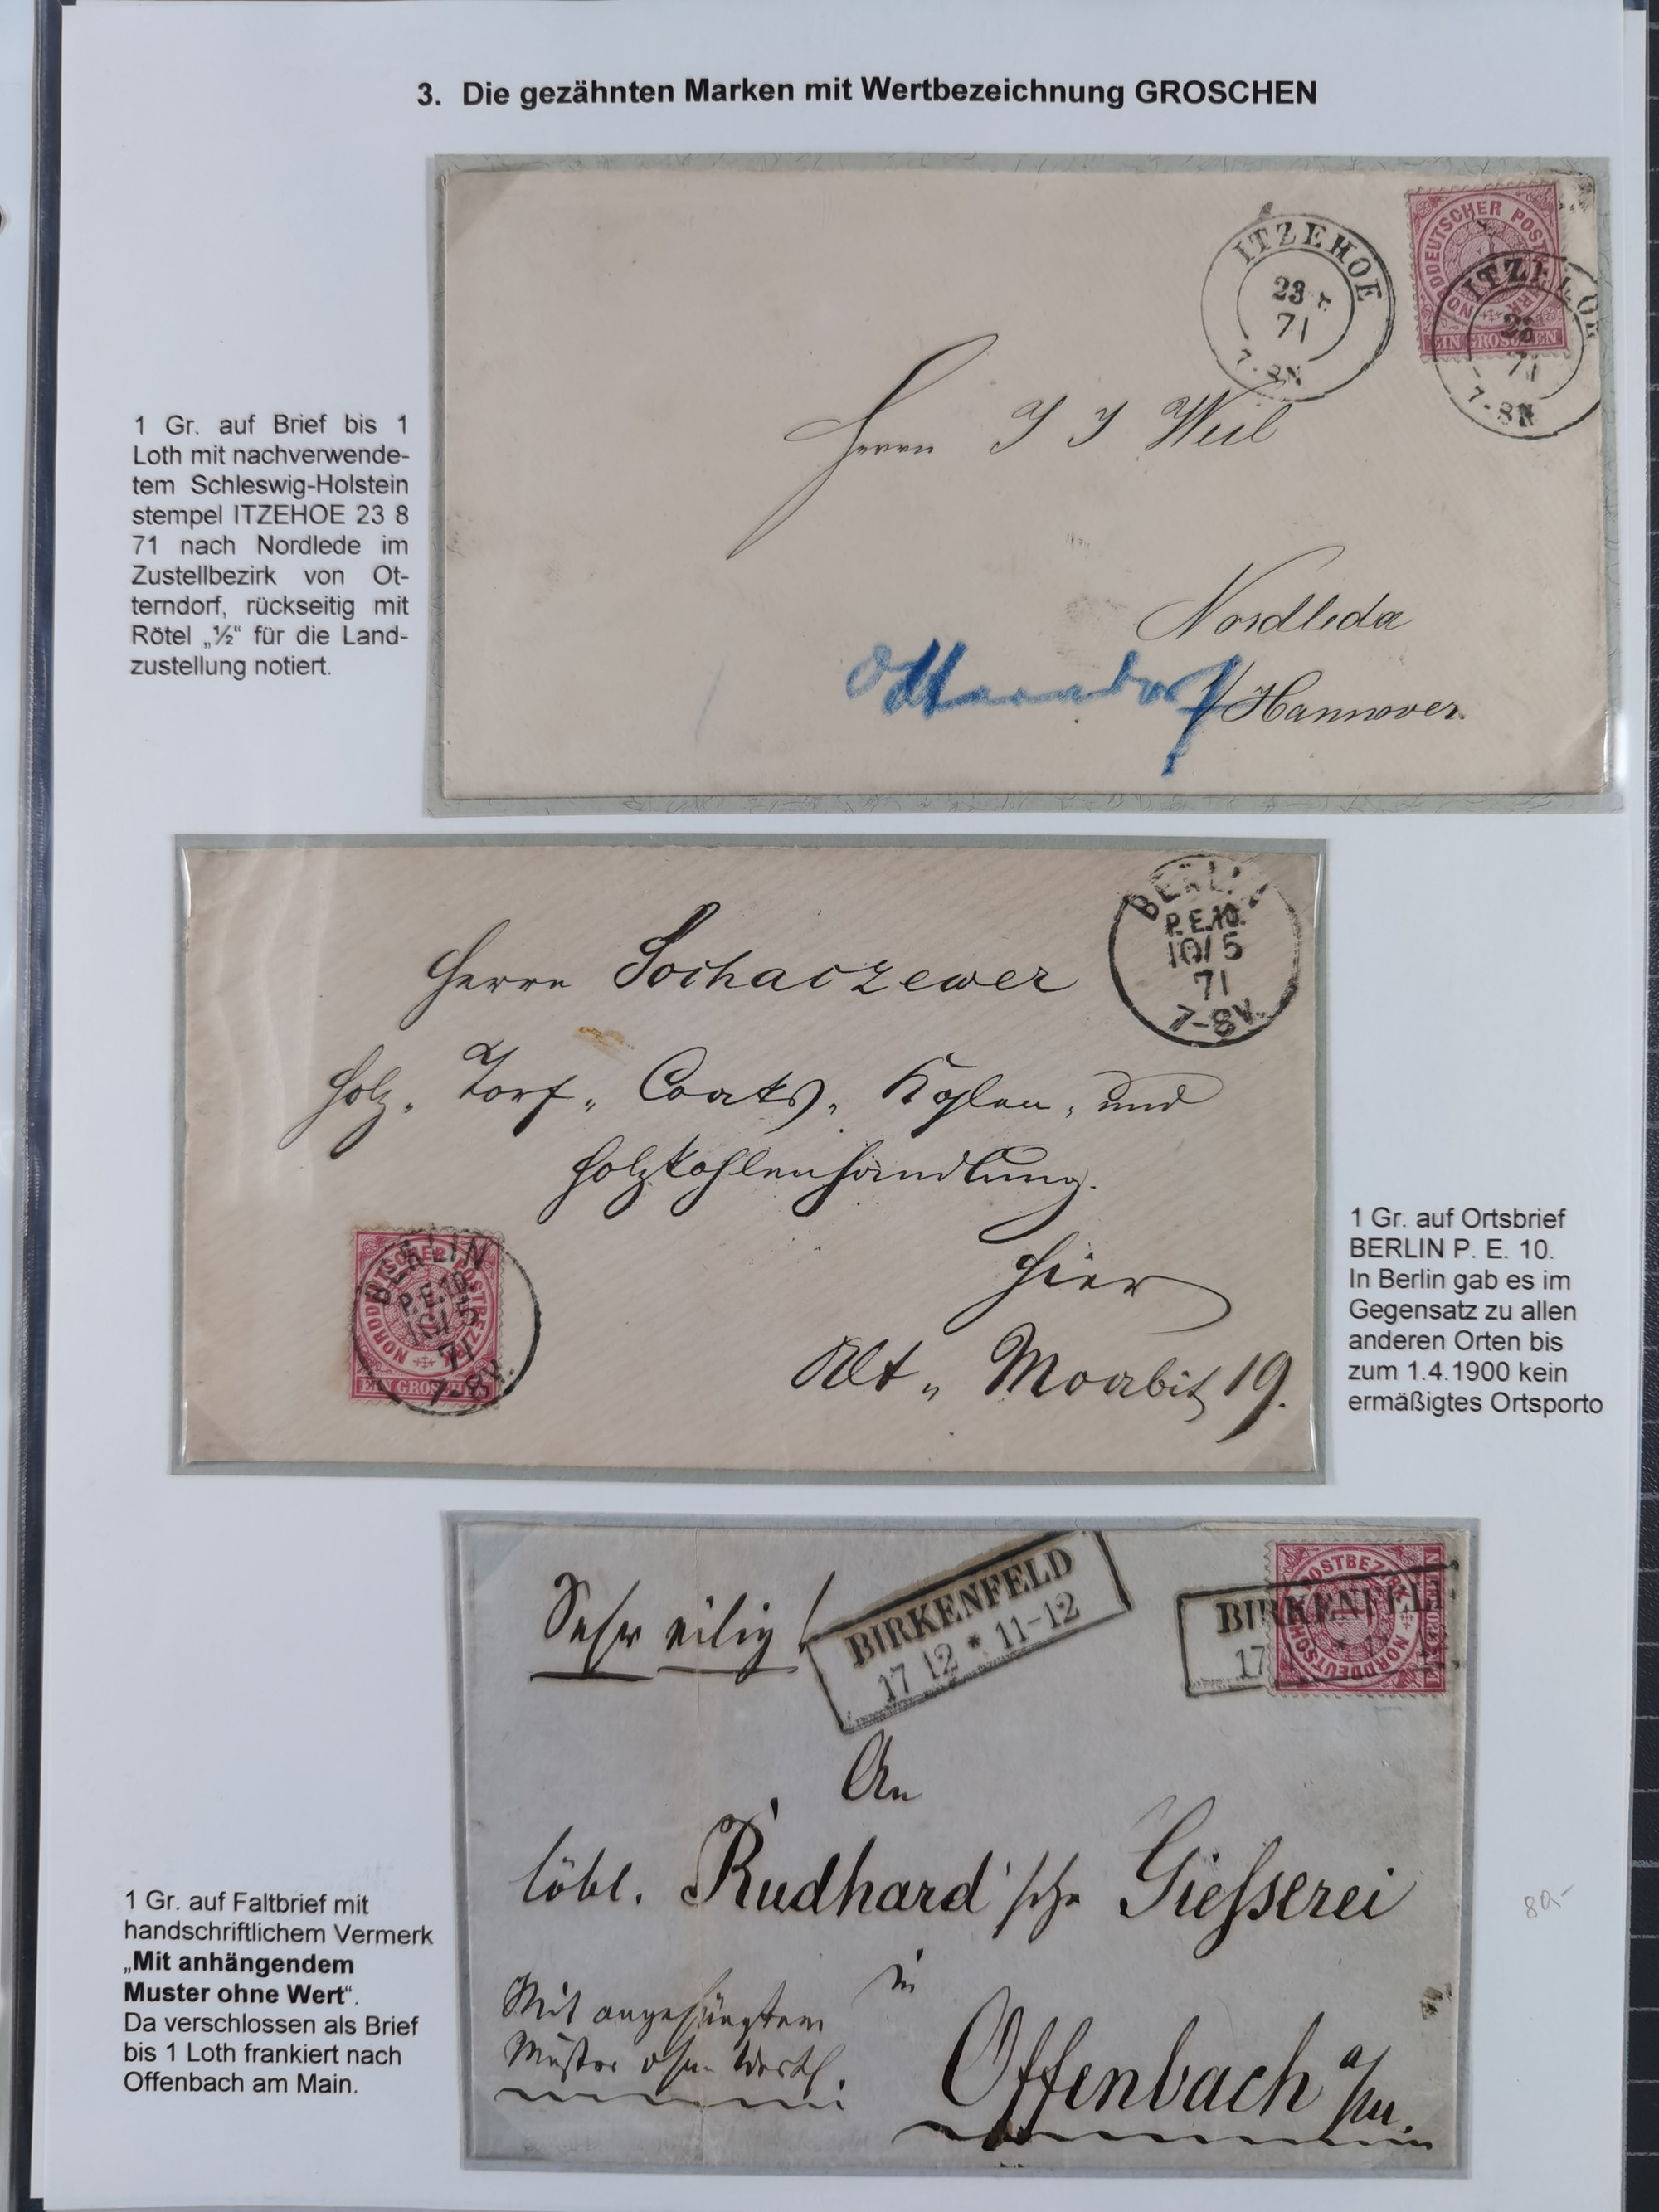 3. Die gezähnten Marken mit Wertbezeichnung GROSCHEN
1 Gr. auf Brief bis 1
Loth mit nachverwende-
tem Schleswig-Holstein
stempel ITZEHOE 23 8
71 nach Nordlede im
Zustellbezirk von Ot-
terndorf, rückseitig mit
Rötel „½“ für die Land-
zustellung notiert.
ITZEHOE
23
71
7-8N
NORDDEUTSCHER POST
EIN GROSCHEN
ITZEHOE
23
71
7-8N
Herrn J J Weil
Nordleda
Otterndorf
/Hannover.
BERLIN
P.E.10.
10/5
71
7-8V.
Herrn Sochaczewer
Holz, Torf, Coaks, Kohlen, und
Holzkohlenhandlung.
Hier
Alt-Moabit 19.
NORDDEUTSCHER POSTBEZIRK
EIN GROSCHEN
BERLIN
P.E.10.
10/5
71
7-8V.
1 Gr. auf Ortsbrief
BERLIN P. E. 10.
In Berlin gab es im
Gegensatz zu allen
anderen Orten bis
zum 1.4.1900 kein
ermäßigtes Ortsporto
Sehr eilig!
BIRKENFELD
17 12 * 11-12
BIRKENFELD
17
NORDDEUTSCHER POSTBEZIRK
An
löbl. Rudhard'sche Giesserei
in
Offenbach a/M.
Mit angehängtem
Muster ohne Werth.
1 Gr. auf Faltbrief mit
handschriftlichem Vermerk
„Mit anhängendem
Muster ohne Wert“.
Da verschlossen als Brief
bis 1 Loth frankiert nach
Offenbach am Main.
80,-